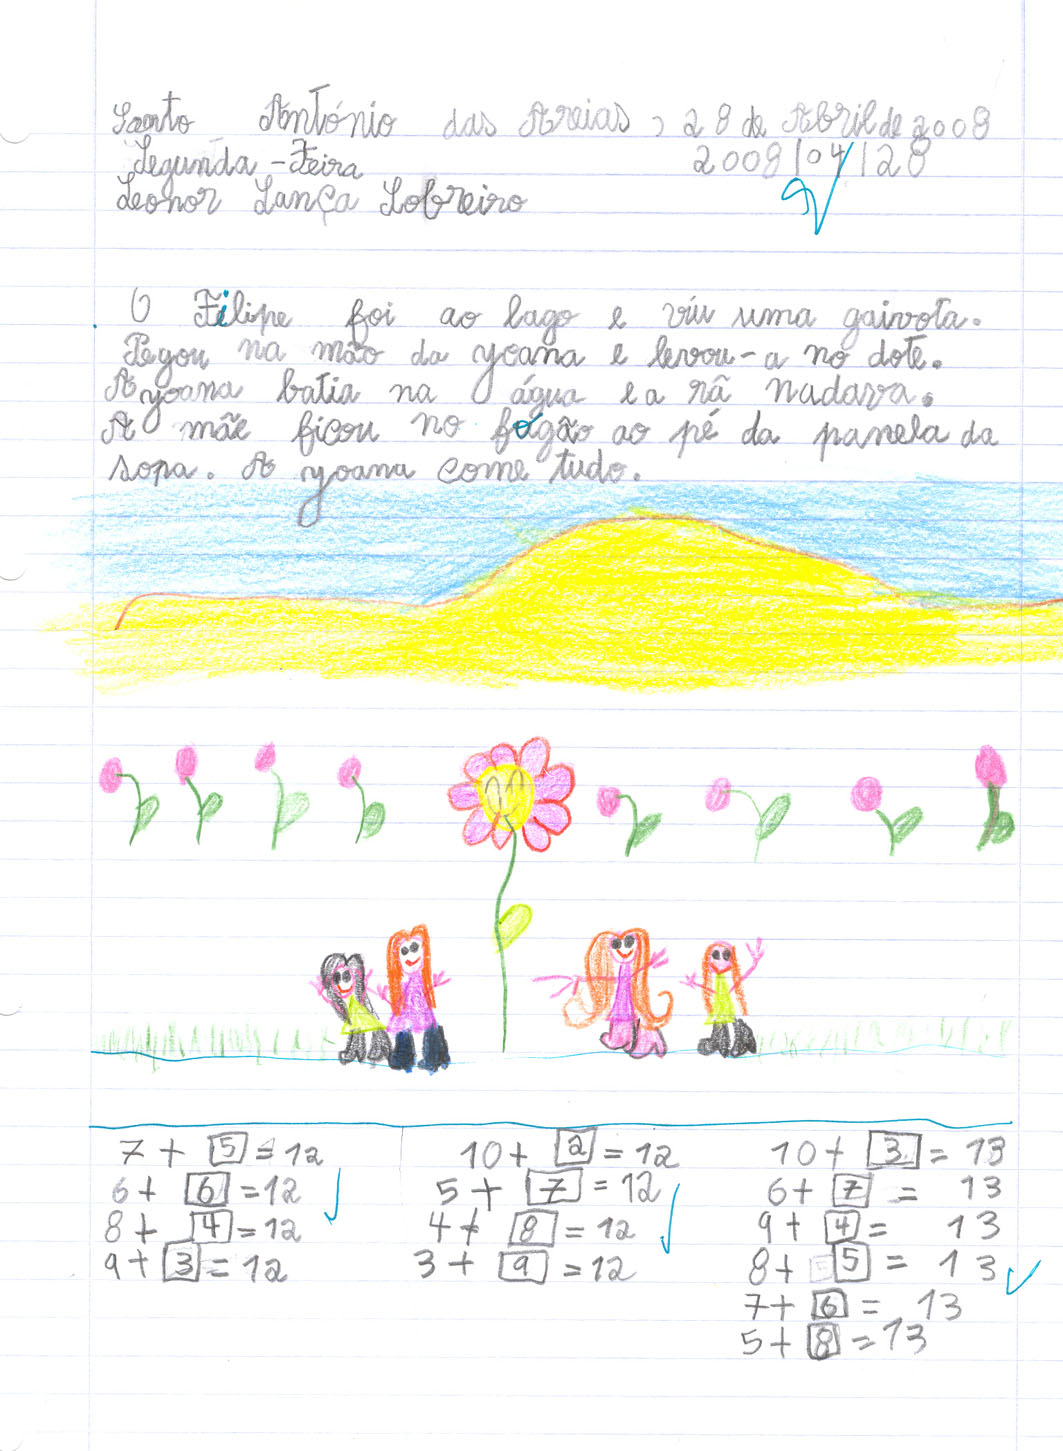 Santo António das Areias, 28 de Abril de 2008
Segunda-Feira 2008/04/28
Leonor Lança Sobreiro
O Filipe foi ao lago e viu uma gaivota.
Pegou na mão da yoana e levou-a no dote.
A yoana batia na água e a rã nadava.
A mãe ficou no fogão ao pé da panela da
sopa. A yoana come tudo.
7 + 5 = 12
6 + 6 = 12
8 + 4 = 12
9 + 3 = 12
10 + 2 = 12
5 + 7 = 12
4 + 8 = 12
3 + 9 = 12
10 + 3 = 13
6 + 7 = 13
9 + 4 = 13
8 + 5 = 13
7 + 6 = 13
5 + 8 = 13